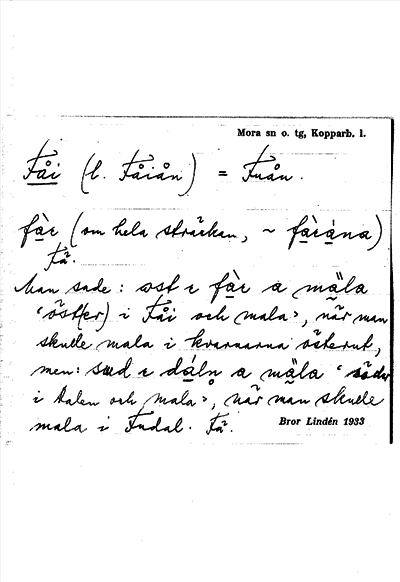 Mora sn o. tg, Kopparb. l.
Fåi (l. Fåiån) = Fuån.
fàr (om hela sträckan, ~ fàràna)
Få.
Man sade: ost ɛ fàr a mäla
‘öst(er) i Fåi och mala’, när man
skulle mala i kvarnarna österut,
men: sud ɛ dáln a mäla ‘söder
i dalen och mala’, när man skulle
mala i Fudal. Få.
Bror Lindén 1933